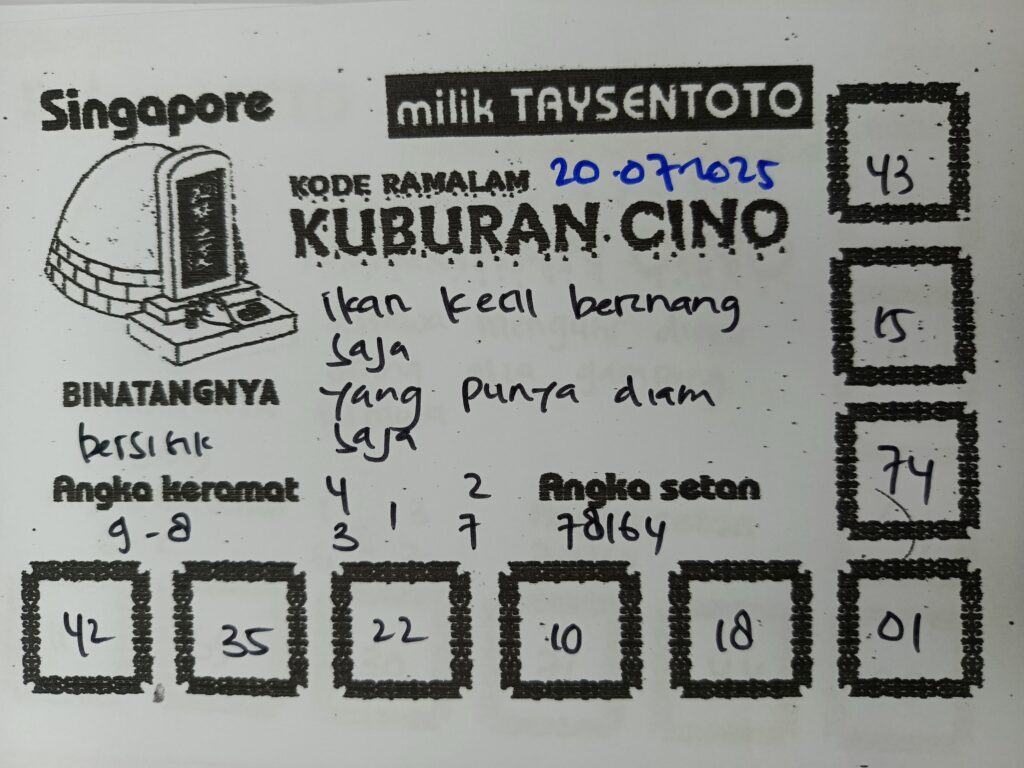 Singapore
milik TAYSENTOTO
KODE RAMALAM 20-07-2025
KUBURAN CINO
ikan kecil berenang
saja
yang punya diam
saja
BINATANGNYA
bersisik
Angka keramat
9-8
4 2
1
3 7
Angka setan
78164
43
15
74
42 35 22 10 18 01